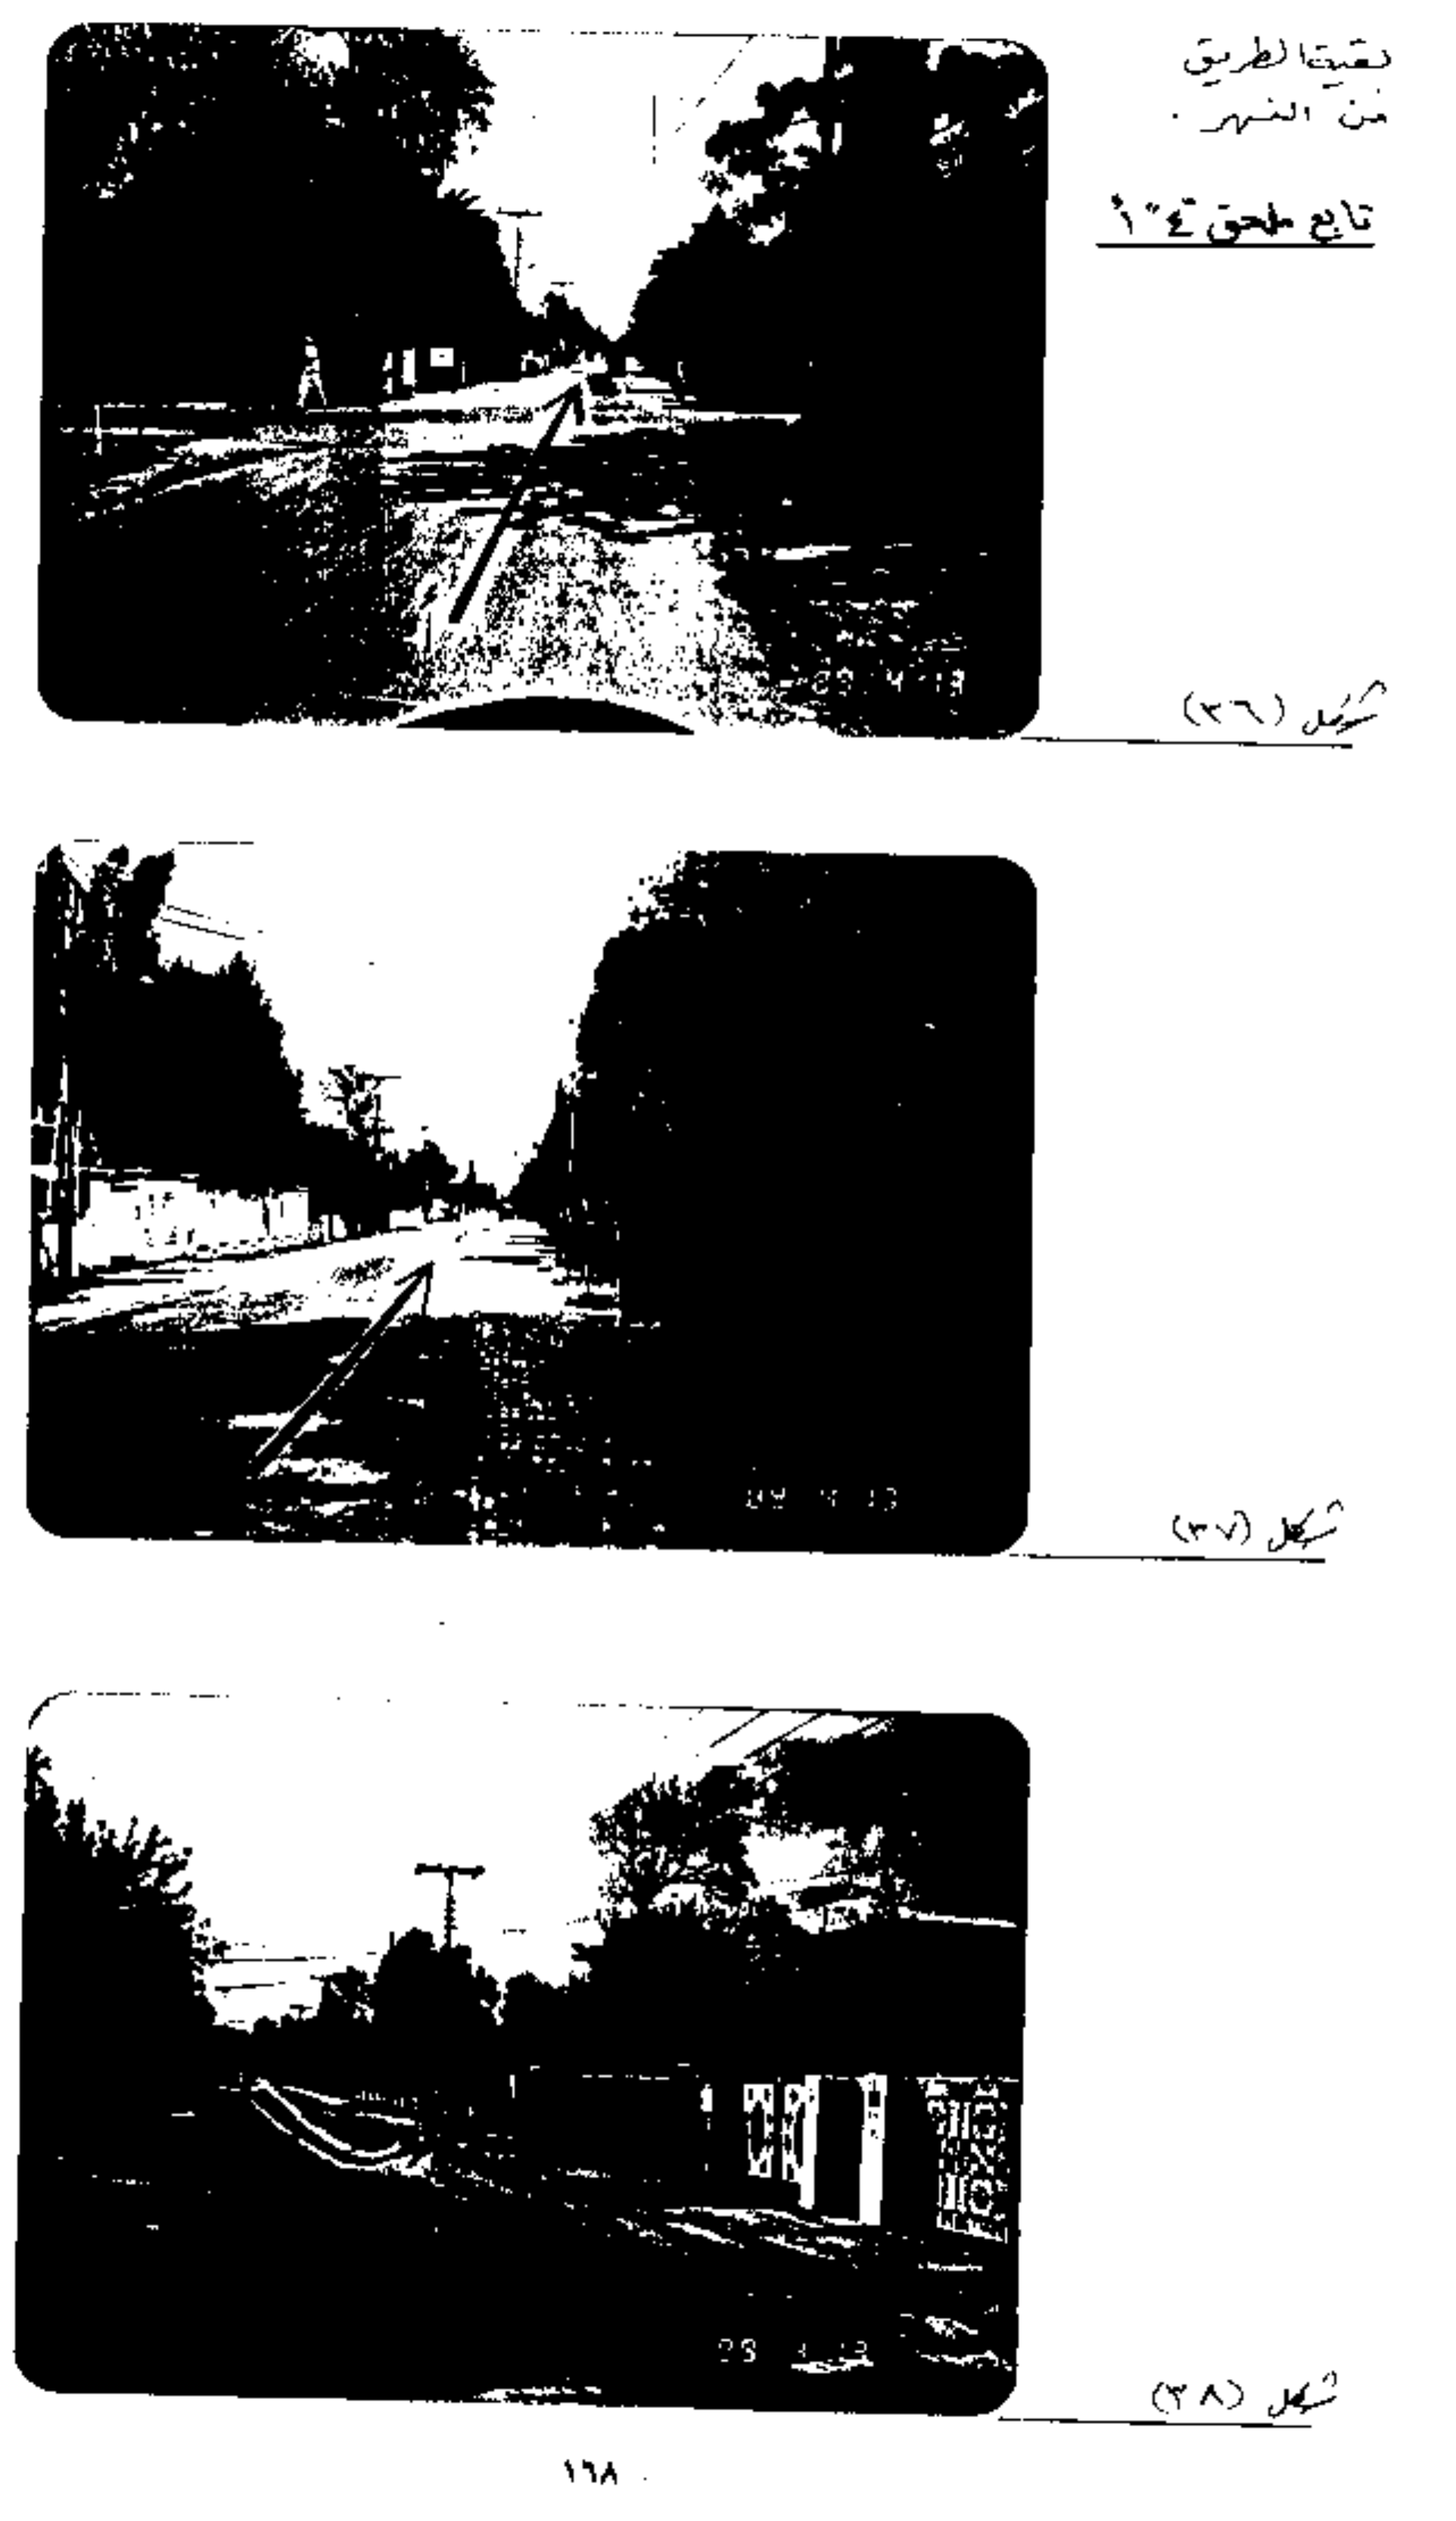 بقية الطريق
من النهر .
تابع ملحق
شكل (٣٦)
شكل (٣٧)
شكل (٣٨)
١٦٨